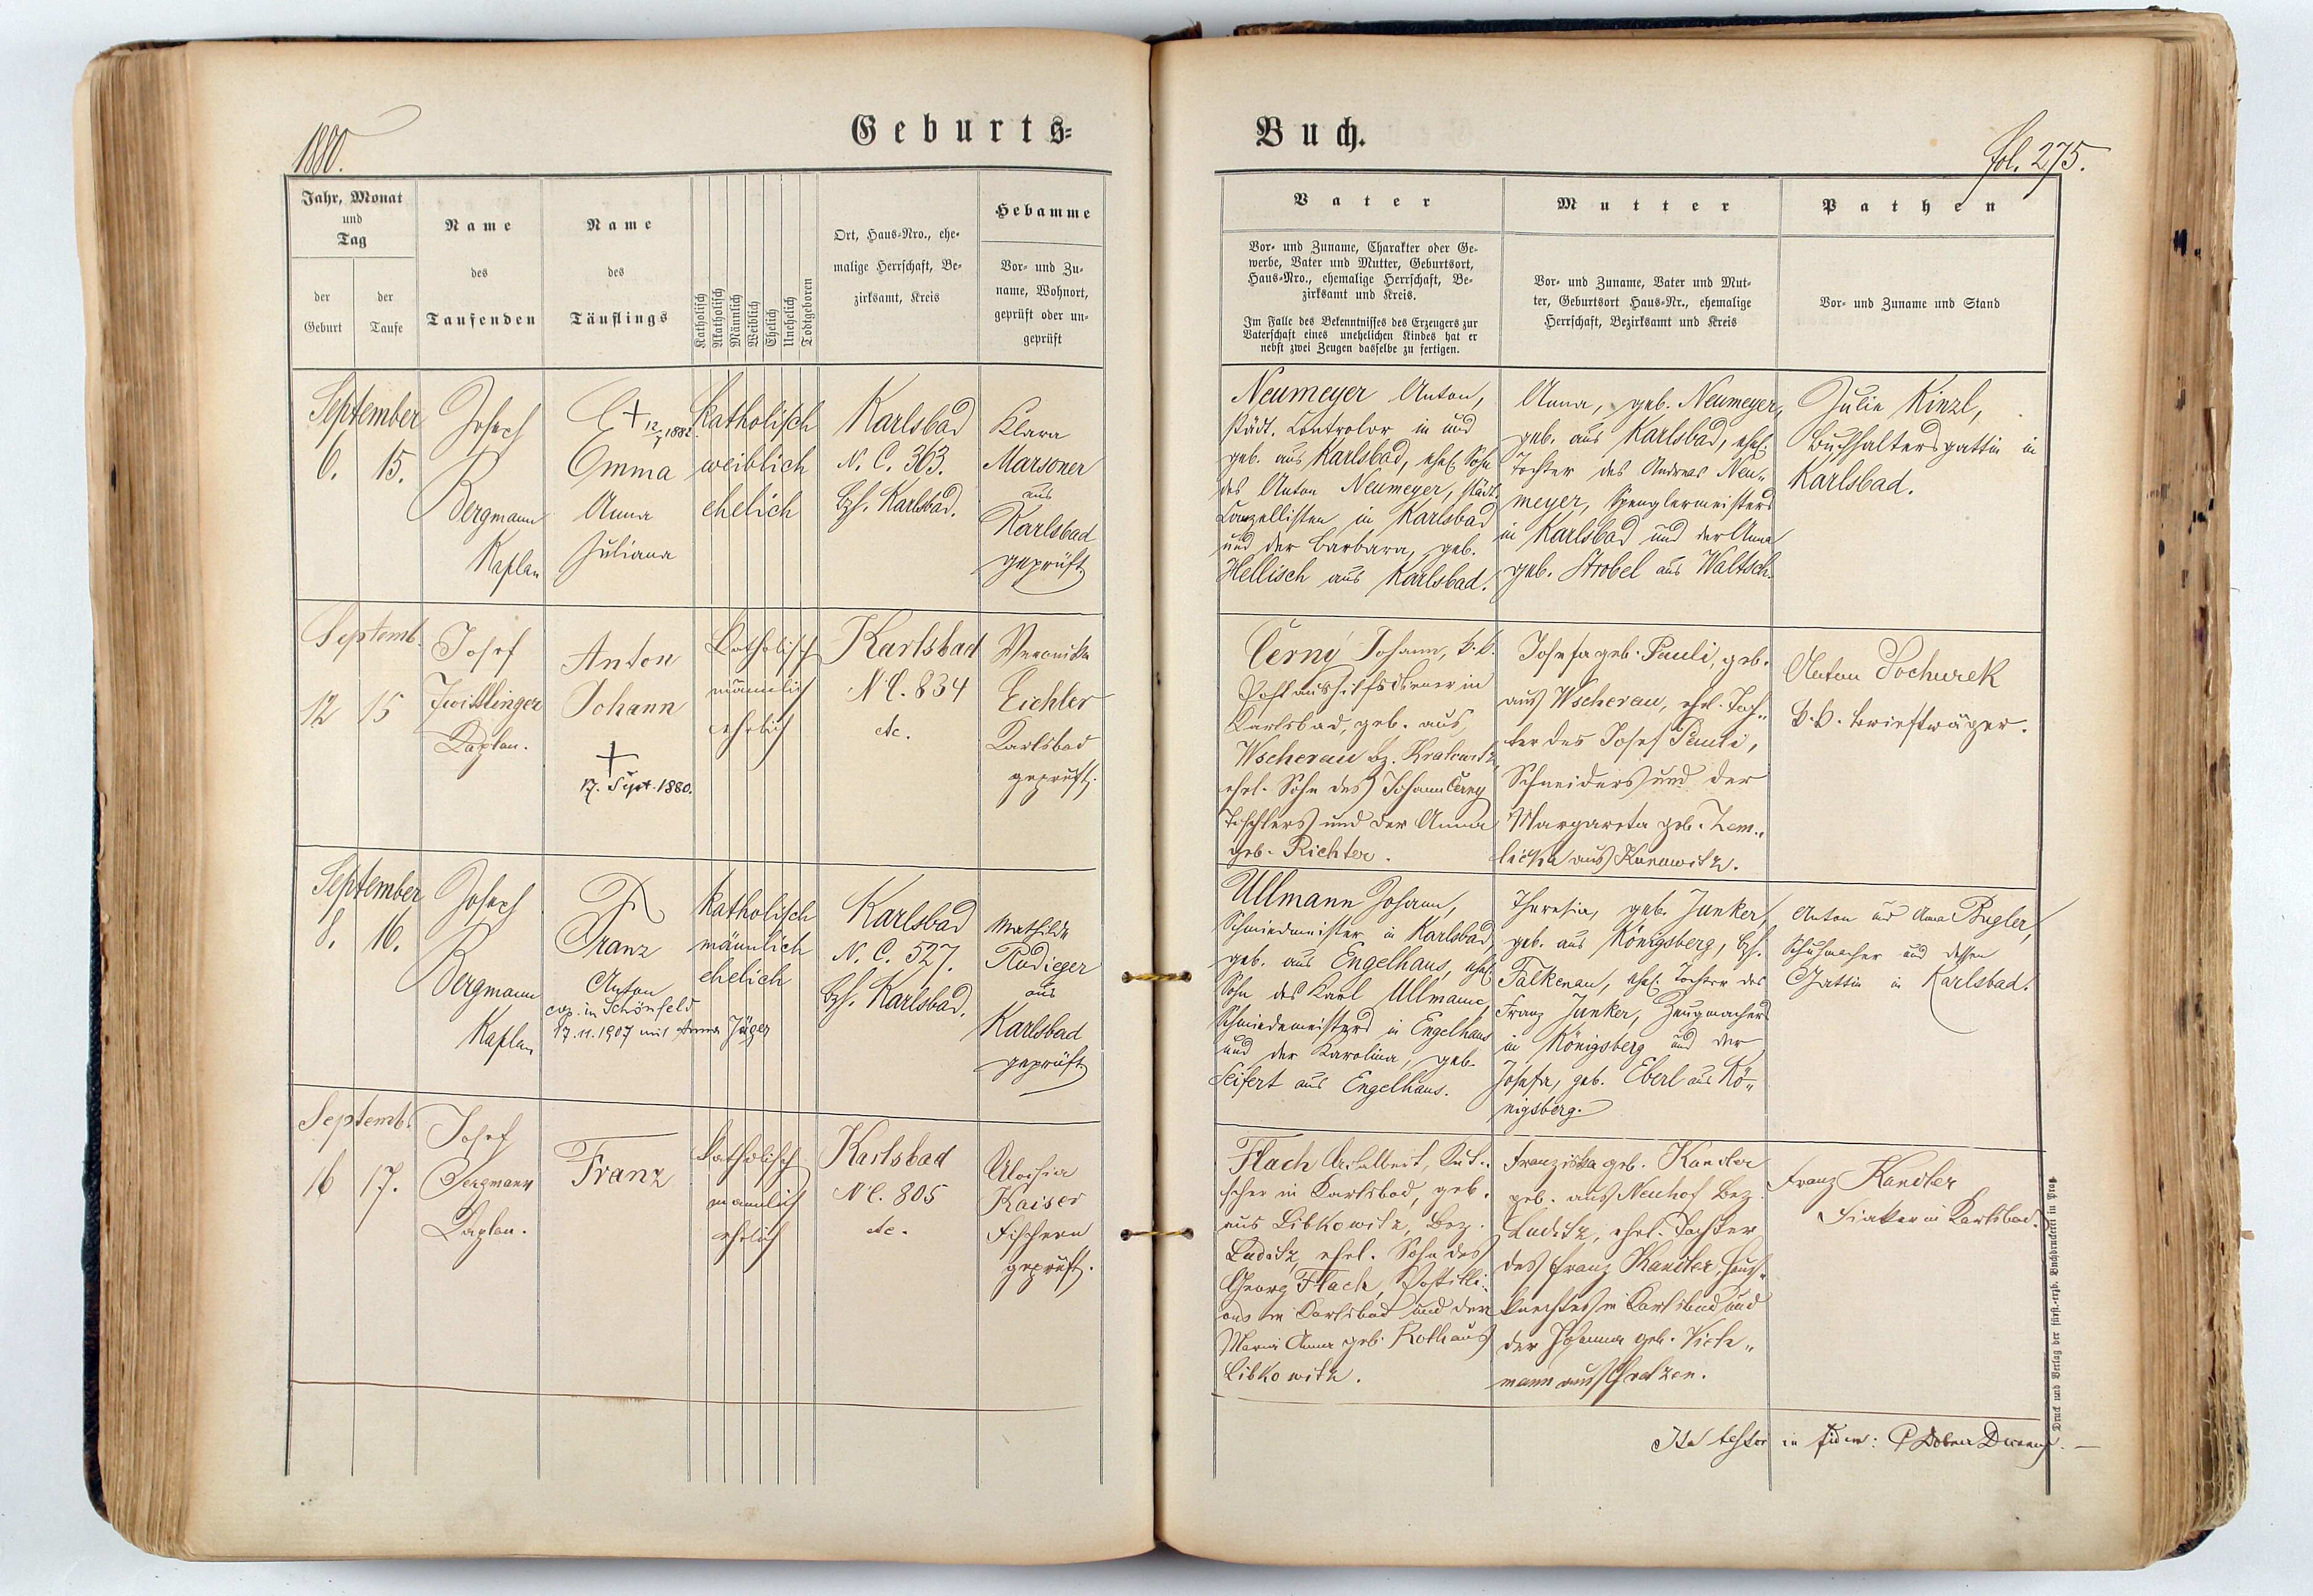 1880.
Geburts=
Jahr, Monat
und
Tag
der
Geburt
der
Taufe
Name
des
Taufenden
Name
des
Täuflings
Katholisch
Akatholisch
Männlich
Weiblich
Ehelich
Unehelich
Todtgeboren
Ort, Haus=Nro., ehe=
malige Herrschaft, Be=
zirksamt, Kreis
Hebamme
Vor= und Zu=
name, Wohnort,
geprüft oder un=
geprüft
September
6. 15.
Josef
Bergmann
Kaplan
Emma
Anna
Juliana
katholisch
weiblich
ehelich
Karlsbad
N. C. 363.
Bzh. Karlsbad.
Klara
Marsoner
aus
Karlsbad
geprüft
Septemb.
12 15
Josef
Zwittlinger
Kaplan.
Anton
Johann
+
17. Sept. 1880.
Katholisch
männlich
ehelich
Karlsbad
N C. 834
etc.
Veronika
Eichler
Karlsbad
geprüft.
September
8. 16.
Josef
Bergmann
Kaplan
Franz
Anton
cop. in Schönfeld
17.11.1907 mit Anna Jäger
katholisch
männlich
ehelich
Karlsbad
N. C. 527.
Bzh. Karlsbad.
Mathilde
Rudieger
aus
Karlsbad
geprüft
Septemb.
16 17.
Josef
Bergmann
Kaplan.
Franz
Katholisch
männlich
ehelich
Karlsbad
N C. 805
etc.
Aloisia
Kaiser
Fischern
geprüft.
Buch.
fol. 275.
Vater
Vor= und Zuname, Charakter oder Ge=
werbe, Vater und Mutter, Geburtsort,
Haus=Nro., ehemalige Herrschaft, Be=
zirksamt und Kreis.
Im Falle des Bekenntnisses des Erzeugers zur
Vaterschaft eines unehelichen Kindes hat er
nebst zwei Zeugen dasselbe zu fertigen.
Mutter
Vor= und Zuname, Vater und Mut=
ter, Geburtsort Haus=Nr., ehemalige
Herrschaft, Bezirksamt und Kreis
Pathen
Vor= und Zuname und Stand
Neumeyer Anton,
städt. Controlor in und
geb. aus Karlsbad, ehel. Sohn
des Anton Neumeyer, städt.
Canzellisten in Karlsbad
und der Barbara, geb.
Hellisch aus Karlsbad.
Anna, geb. Neumeyer,
geb. aus Karlsbad, ehel.
Tochter des Andreas Neu„
meyer, Spenglermeisters
in Karlsbad und der Anna
geb. Strobel aus Waltsch.
Julie Kinzl,
Buchhaltersgattin in
Karlsbad.
Černý Johann, k.k.
Postaushilfsdiener in
Karlsbad, geb. aus
Wscherau Bz. Kralowitz,
ehel. Sohn des Johann Černy
Tischlers und der Anna
geb. Richter.
Josefa geb. Pauli, geb.
aus Wscherau, ehel. Toch„
ter des Josef Pauli,
Schneiders und der
Margareta geb. Zem„
licka aus
Anton Sochurek
k.k. Briefträger.
Ullmann Johann,
Schmiedmeister in Karlsbad,
geb. aus Engelhaus, ehel.
Sohn des Karl Ullmann,
Schmiedemeisters in Engelhaus
und der Karolina, geb.
Seifert aus Engelhaus.
Theresia, geb. Junker,
geb. aus Königsberg, Bzh.
Falkenau, ehel. Tochter des
Franz Junker, Zeugmachers
in Königsberg und der
Josefa, geb. Eberl aus Kö„
nigsberg.
Anton und Anna Bugler,
Schuhmacher und dessen
Gattin in Karlsbad.
Flach Adalbert, Kut„
scher in Karlsbad, geb.
aus Libkowitz, Bez.
Luditz, ehel. Sohn des
Georg Flach, Postilli„
ons in Karlsbad und der
Maria Anna geb. Roth aus
Libkowitz.
Franziska geb. Kandler
geb. aus Neuhof Bez.
Luditz, ehel. Tochter
des Franz Kandler, Haus„
knechtes in Karlsbad und
der Johanna geb.
mann aus
Franz Kandler
Fiaker in Karlsbad.
Ita testor in fidem: P.
Druck und Verlag der fürst.=erzb. Buchdruckerei in Prag.